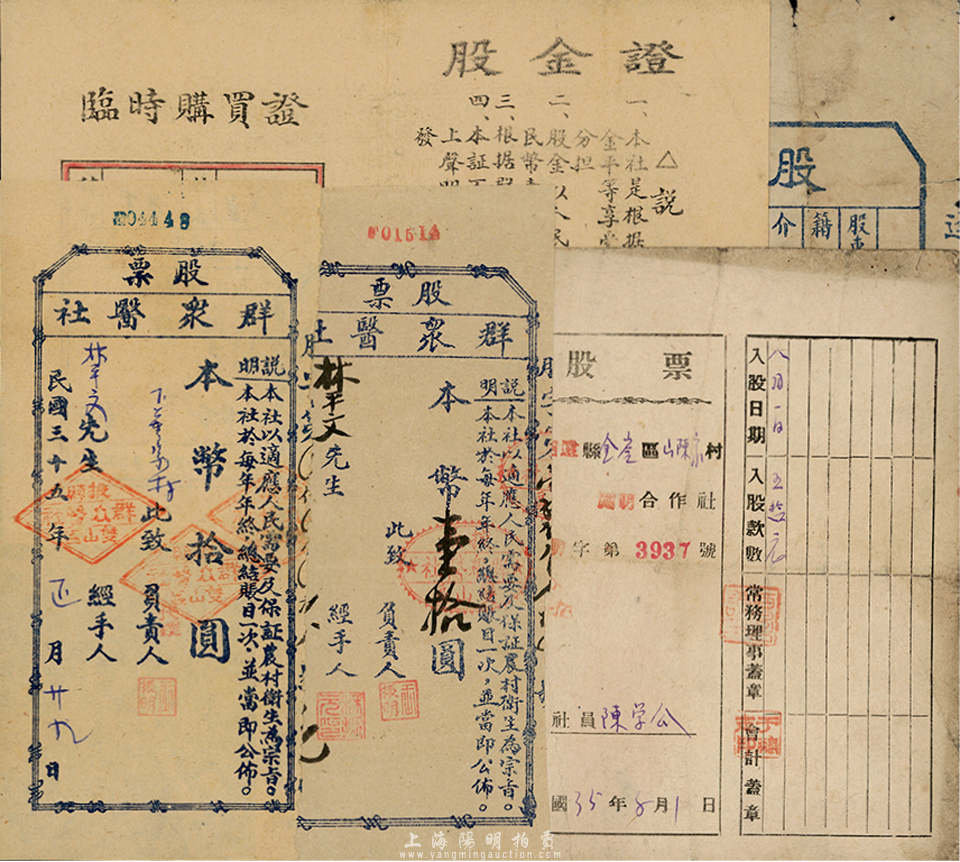 股金證
說
一、本社是根据
金平等享
分担
二、股金以人民
民幣
三、根据
四、本証
上聲明
發
臨時購買證
股
介
籍
04448
股票
群衆醫社
說明
本社以適應人民需要及保証農村衛生為宗旨。
本社於每年年終，總結賬目一次，並當即公佈。
本幣拾圓
此致
林平文先生
負責人
經手人
民國三十五年正月廿九日
股票
群衆醫社
說明
本社以適應人民需要及保証農村衛生為宗旨。
本社於每年年終，總結賬目一次，並當即公佈。
本幣壹拾圓
林平文先生
此致
負責人
經手人
股票
縣金崖區山陳家村
合作社
字第3937號
社員陳学公
國35年8月1日
入股日期
八月一日
入股款數
常務理事蓋章
會計蓋章
上海陽明拍賣
www.yangmingauction.com